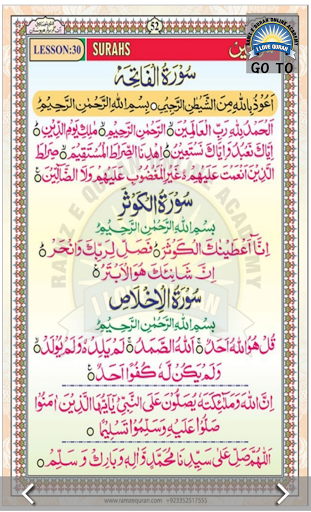 52
LESSON:30 SURAHS
I LOVE QURAN
GO TO
سُوْرَةُ الْفَاتِحَة
اَعُوْذُ بِاللّٰهِ مِنَ الشَّيْطٰنِ الرَّجِيْمِ بِسْمِ اللّٰهِ الرَّحْمٰنِ الرَّحِيْمِ
اَلْحَمْدُ لِلّٰهِ رَبِّ الْعَالَمِيْنَ الرَّحْمٰنِ الرَّحِيْمِ مٰلِكِ يَوْمِ الدِّيْنِ
اِيَّاكَ نَعْبُدُ وَاِيَّاكَ نَسْتَعِيْنُ اِهْدِنَا الصِّرَاطَ الْمُسْتَقِيْمَ صِرَاطَ
الَّذِيْنَ اَنْعَمْتَ عَلَيْهِمْ غَيْرِ الْمَغْضُوْبِ عَلَيْهِمْ وَلَا الضَّآلِّيْنَ
سُوْرَةُ الْكَوْثَرِ
بِسْمِ اللّٰهِ الرَّحْمٰنِ الرَّحِيْمِ
اِنَّآ اَعْطَيْنٰكَ الْكَوْثَرَ فَصَلِّ لِرَبِّكَ وَانْحَرْ
اِنَّ شَانِئَكَ هُوَ الْاَبْتَرُ
سُوْرَةُ الْاِخْلَاصِ
بِسْمِ اللّٰهِ الرَّحْمٰنِ الرَّحِيْمِ
قُلْ هُوَ اللّٰهُ اَحَدٌ اَللّٰهُ الصَّمَدُ لَمْ يَلِدْ وَلَمْ يُوْلَدْ
وَلَمْ يَكُنْ لَّهٗ كُفُوًا اَحَدٌ
اِنَّ اللّٰهَ وَمَلٰٓئِكَتَهٗ يُصَلُّوْنَ عَلَى النَّبِيِّ يٰٓاَيُّهَا الَّذِيْنَ اٰمَنُوْا
صَلُّوْا عَلَيْهِ وَسَلِّمُوْا تَسْلِيْمًا
اَللّٰهُمَّ صَلِّ عَلٰى سَيِّدِنَا مُحَمَّدٍ وَّاٰلِهٖ وَبَارِكْ وَسَلِّمْ
www.ramzequran.com +923352517555